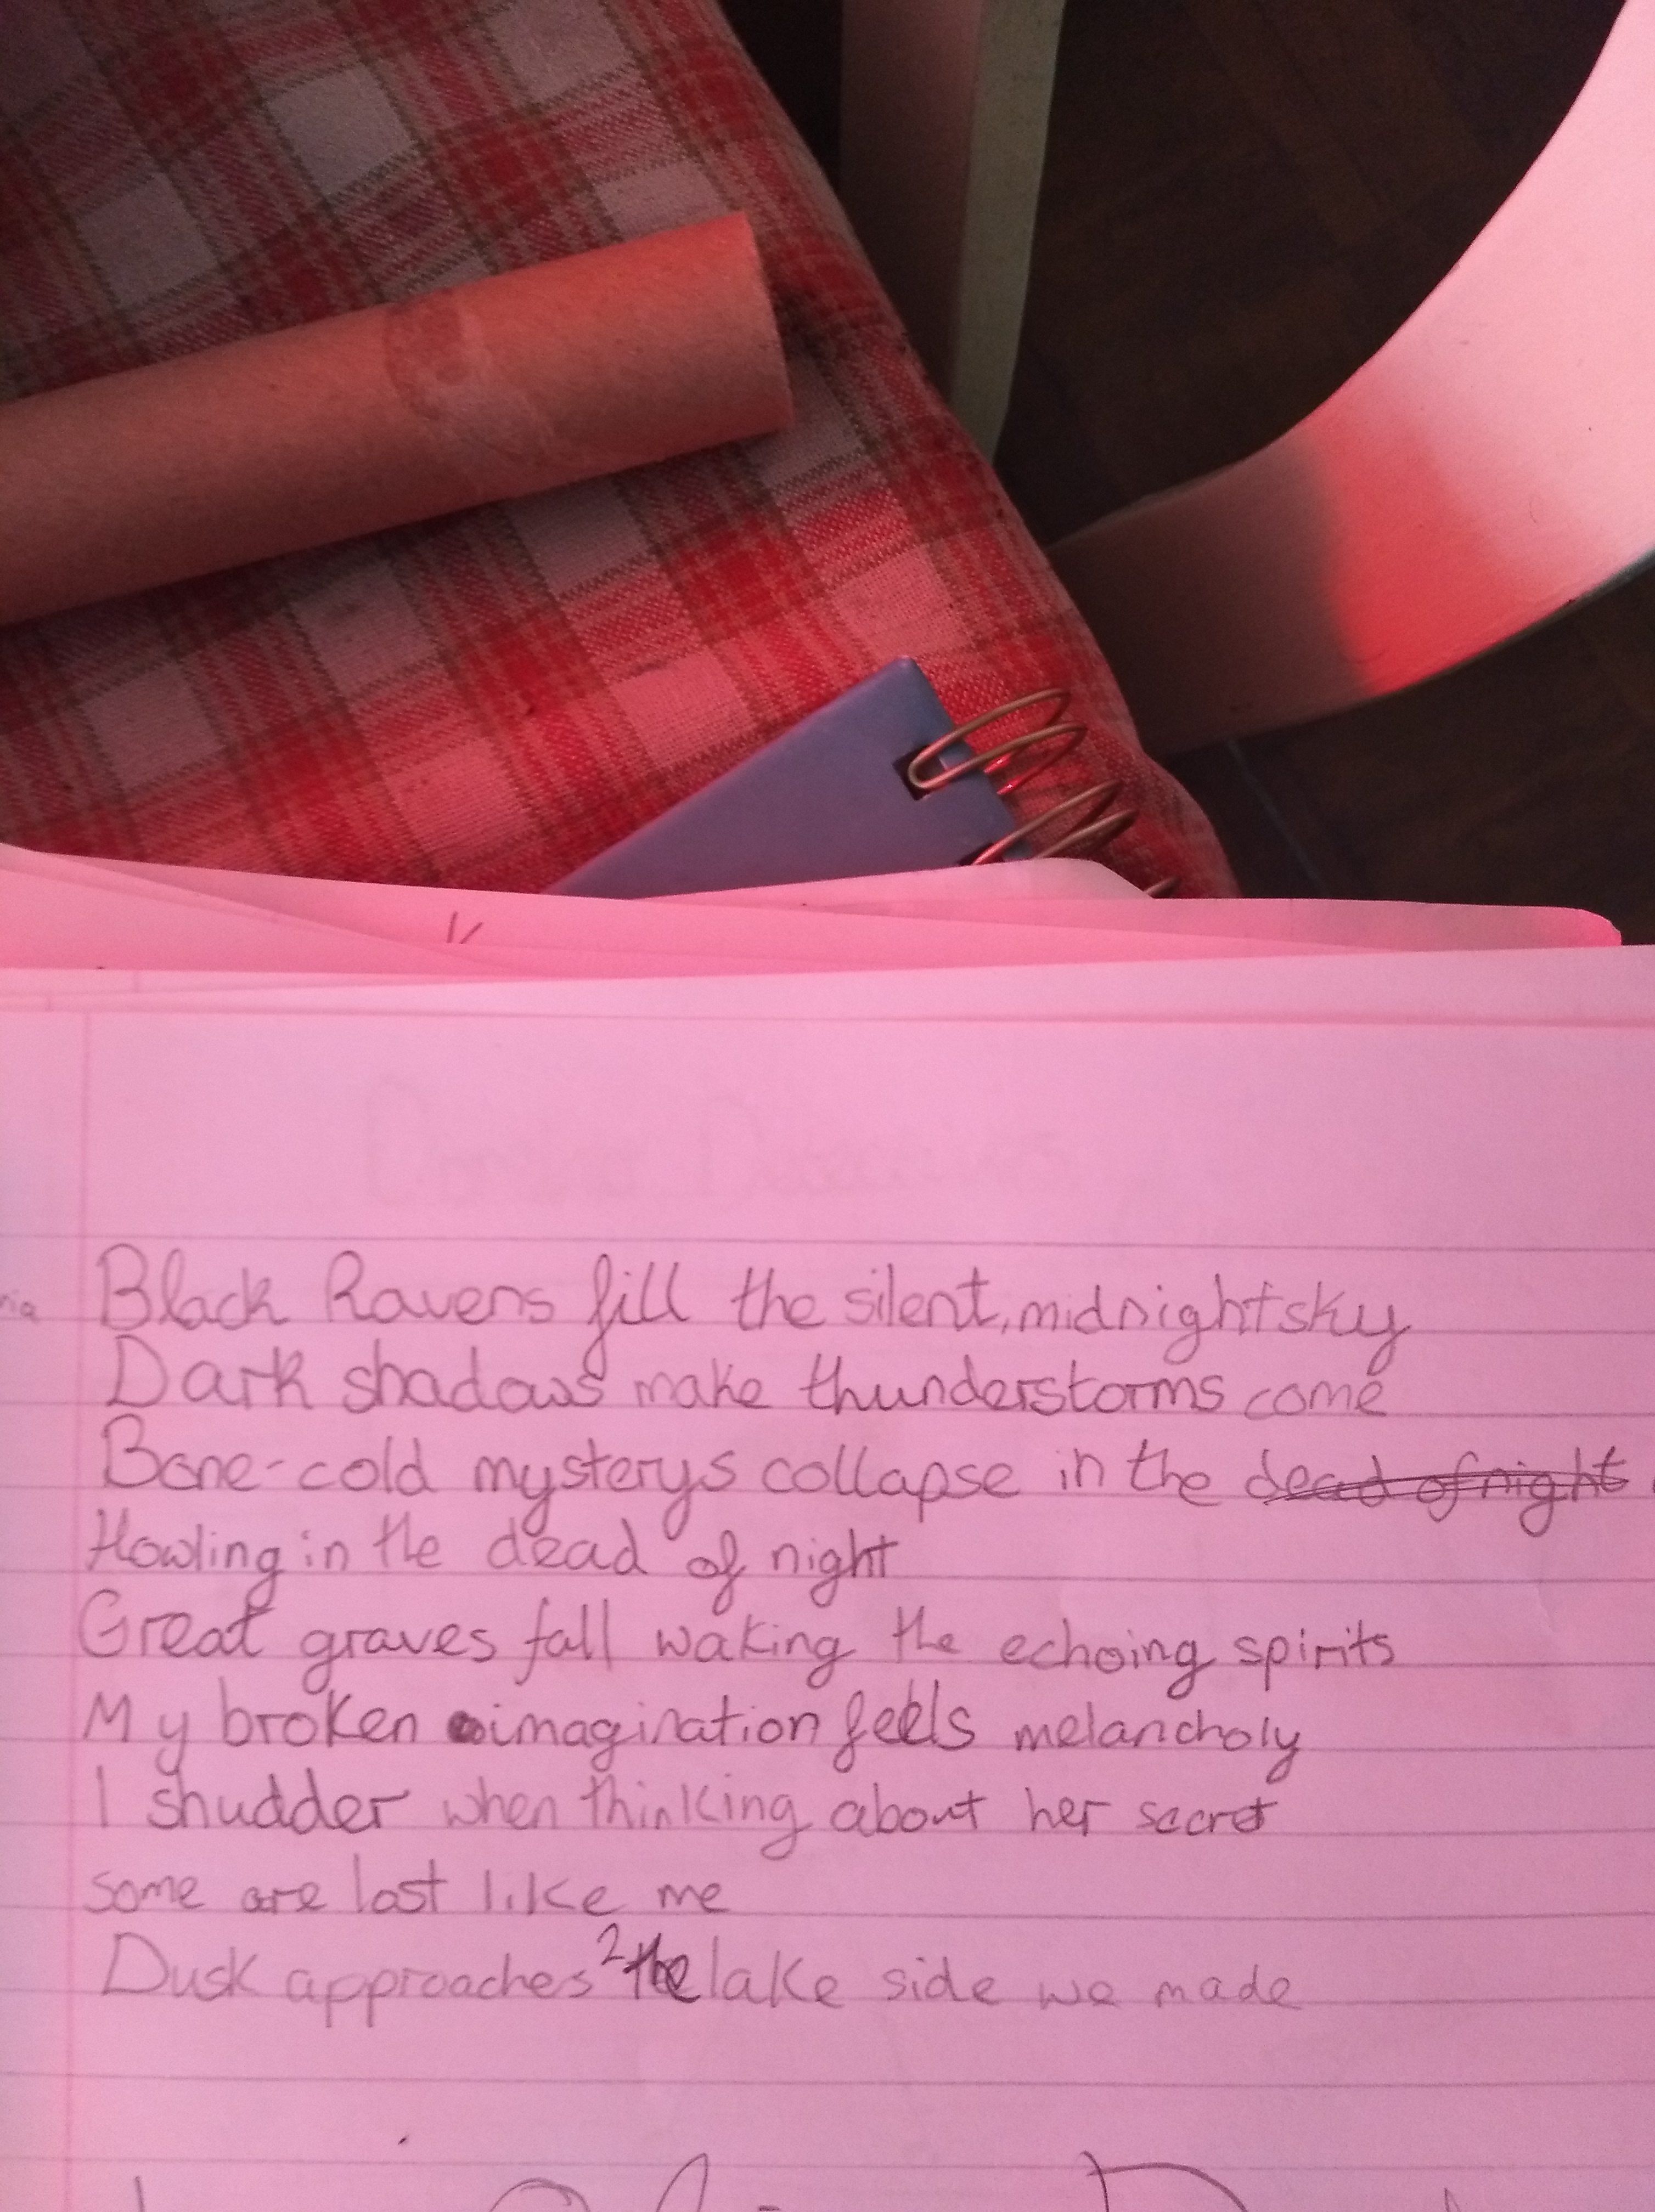 Black Ravens fill the silent, midnight sky
Dark shadows make thunderstorms come
Bone-cold mysterys collapse in the dead of night
Howling in the dead of night
Great graves fall waking the echoing spirits
My broken imagination feels melancholy
I shudder when thinking about her secret
some are lost like me
Dusk approaches 2 the lake side we made